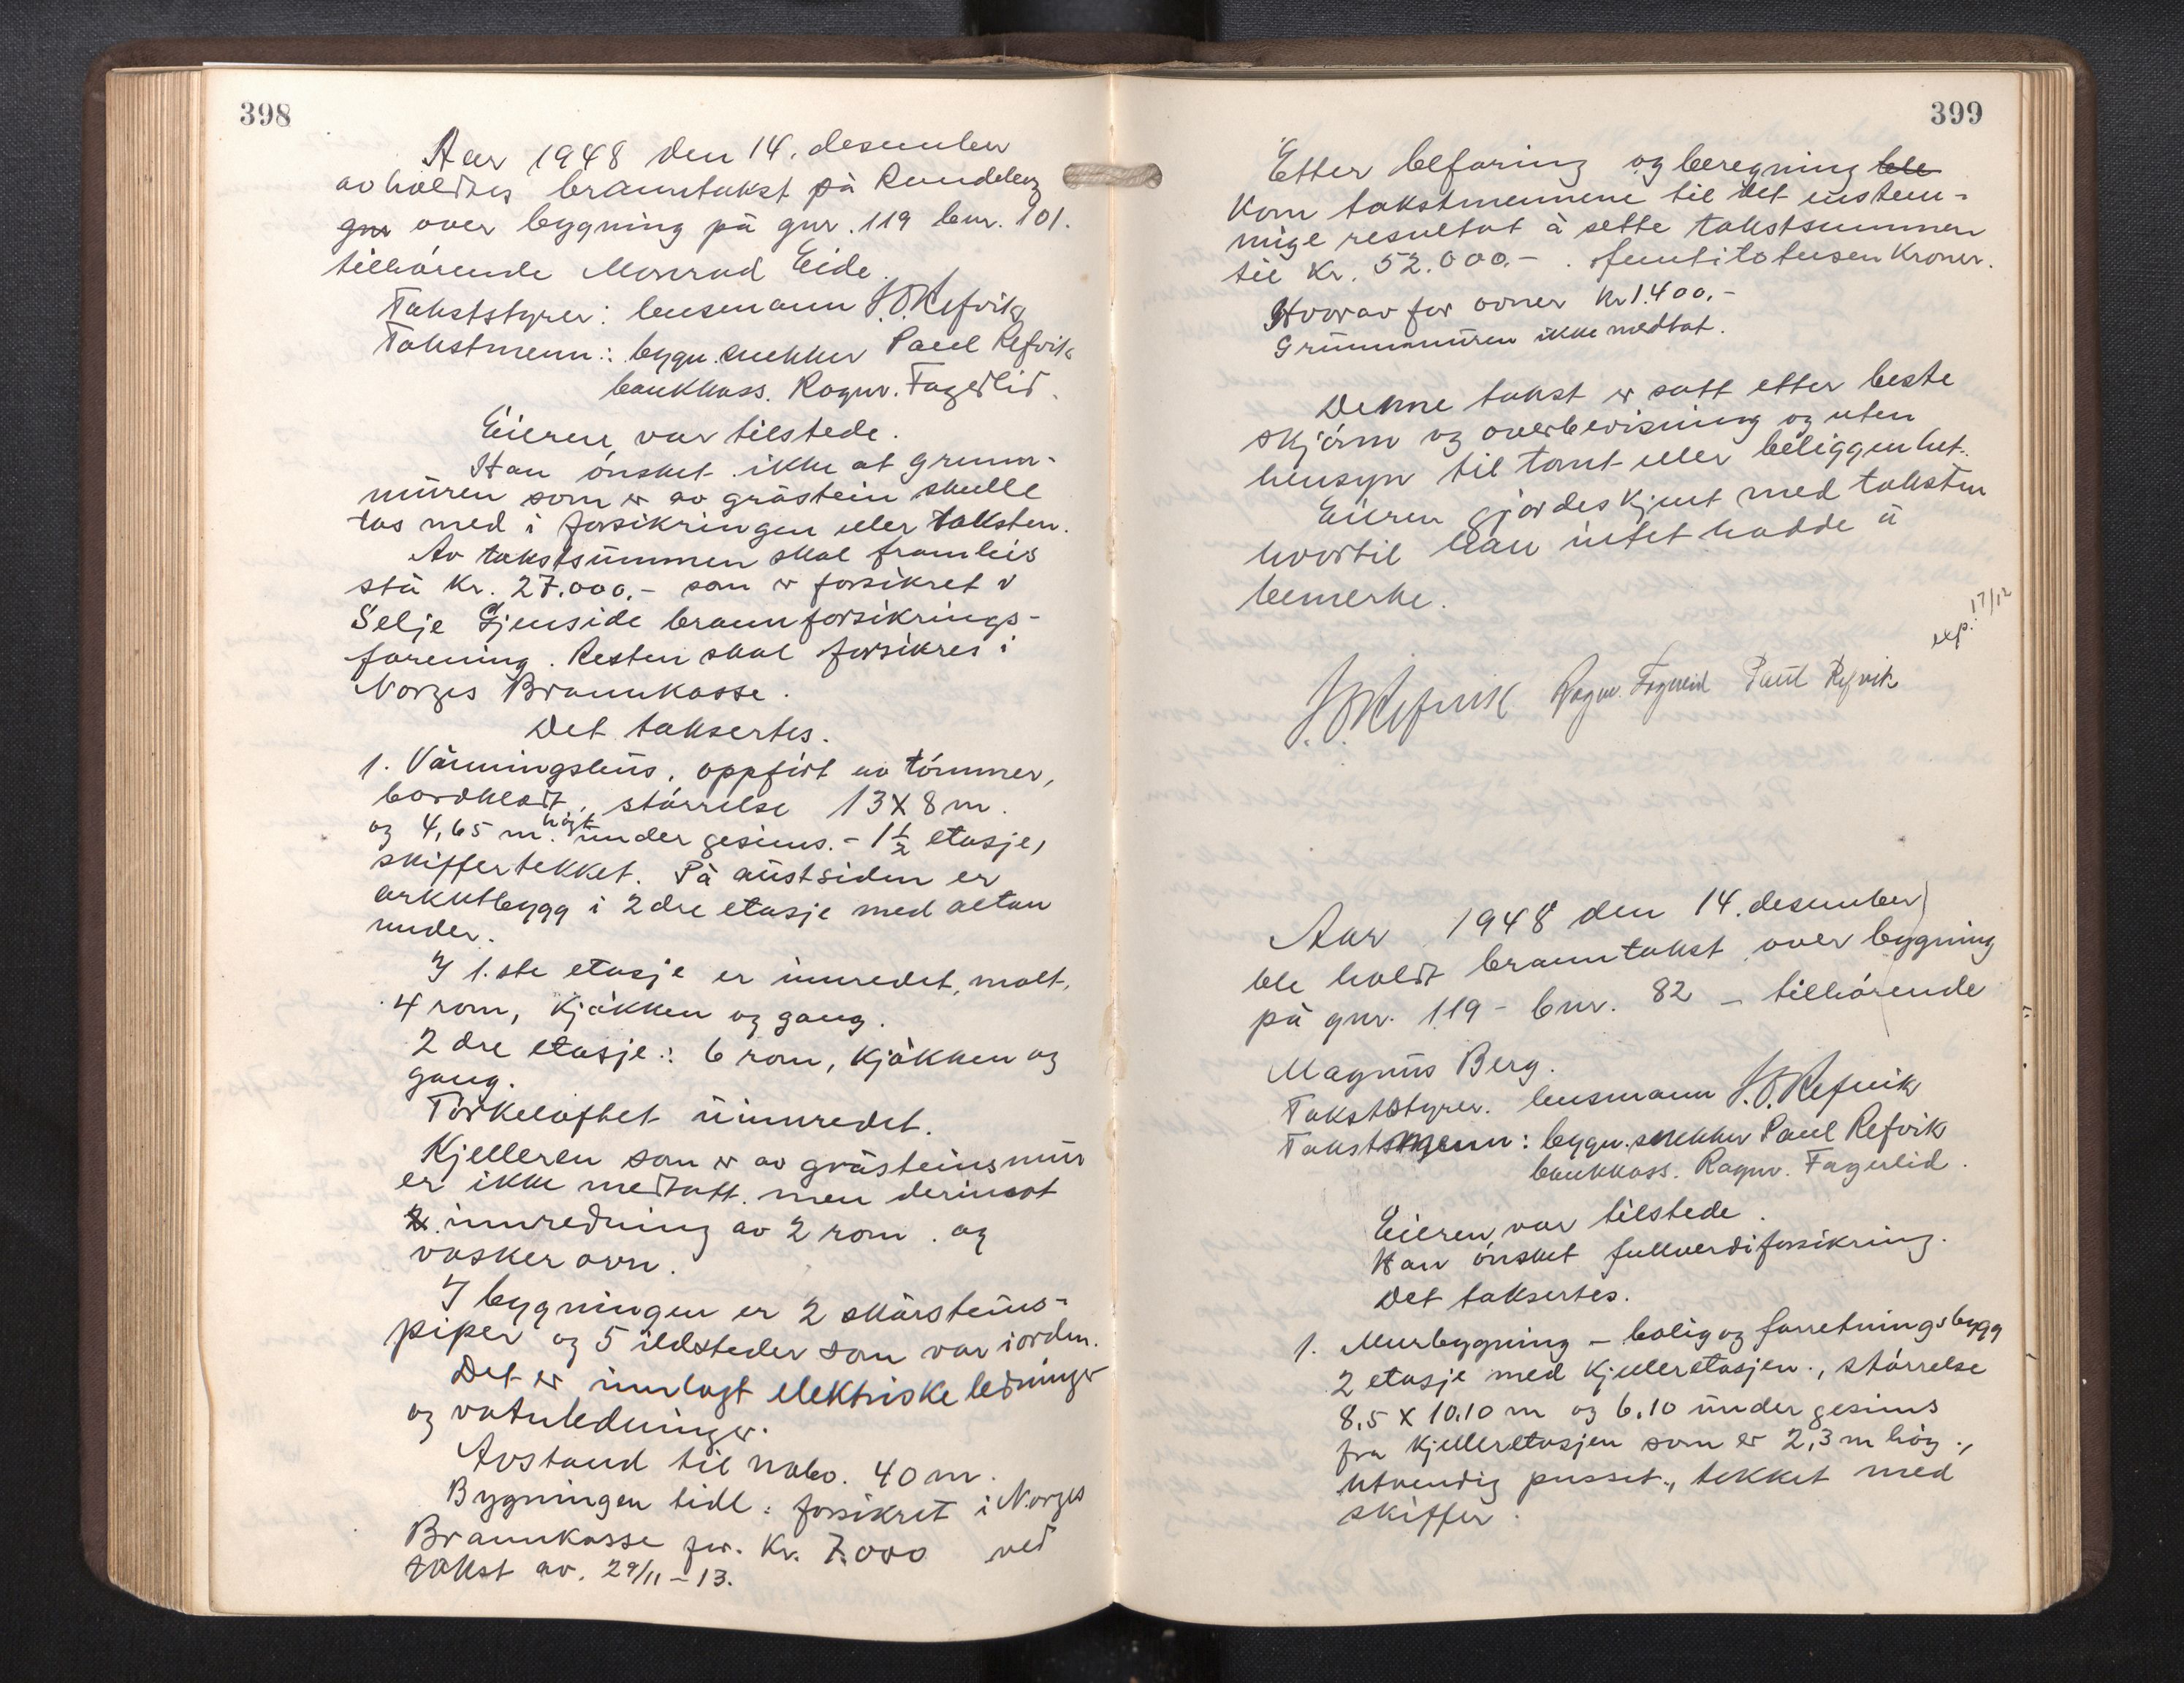 398
Aar 1948 den 14. desember
avholdtes branntakst på Rundeberg
gnr over bygning på gnr. 119 bnr. 101.
tilhørende Monrad Eide.
Takststyrer: lensmann J.O. Refvik
Takstmenn: bygn.snekker Paul Refvik
bankkass. Ragnv. Fagerlid.
Eieren var tilstede.
Han ønsket ikke at grunn-
muren som er av gråstein skulle
tas med i forsikringen eller taksten.
Av takstsummen skal framleis
stå kr. 27.000.- som er forsikret i
Selje Gjenside brannforsikrings-
forening. Resten skal forsikres i
Norges Brannkasse.
Det taksertes.
1. Våningshus, oppført av tømmer,
bordkledt, størrelse 13 x 8 m.
og 4,65 m. høgt under gesims. - 1 ½ etasje,
skiffertekket. På austsiden er
arkutbygg i 2dre etasje med altan
under.
I 1.ste etasje er innredet, malt,
4 rom, kjøkken og gang.
2dre etasje: 6 rom, kjøkken og
gang.
Tørkeloftet uinnredet.
Kjelleren som er av gråsteinsmur
er ikke medtatt, men derimot
2. innredning av 2 rom. og
vaskerovn.
I bygningen er 2 skorsteins-
piper og 5 ildsteder som var i orden.
Det er innlagt elektriske ledninger
og vatnledninger.
Avstand til nabo. 40 m.
Bygningen tidl: forsikret i Norges
Brannkasse for. Kr. 7.000 ved
takst av. 29/11 - 13.
399
Etter befaring og beregning ble
kom takstmennene til det enstem-
mige resultat å sette takstsummen
til Kr. 52.000.- . femtitotusen Kroner.
Hvorav for ovner kr 1.400.-
Grunnmuren ikke medtat.
Denne takst er satt etter beste
skjønn og overbevisning og uten
hensyn til tomt eller beliggenhet.
Eieren gjordes kjent med taksten
hvortil han intet hadde å
bemerke.
exp. 17/12
J.O. Refvik Ragnv. Fagerlid Paul Refvik
Aar 1948 den 14. desember
ble holdt branntakst over bygning
på gnr. 119 - bnr. 82 - tilhørende
Magnus Berg.
Takststyrer. lensmann J.O. Refvik
Takstsmenn: bygn.snekker Paul Refvik
bankkass. Ragnv. Fagerlid.
Eieren var tilstede.
Han ønsket fullverdiforsikring.
Det taksertes.
1. Murbygning - bolig og forretningsbygg
2 etasje med kjelleretasjen, størrelse
8,5 x 10.10 m og 6,10 under gesims
fra kjelleretasjen som er 2,3 m høg.,
utvendig pusset., tekket med
skiffer.